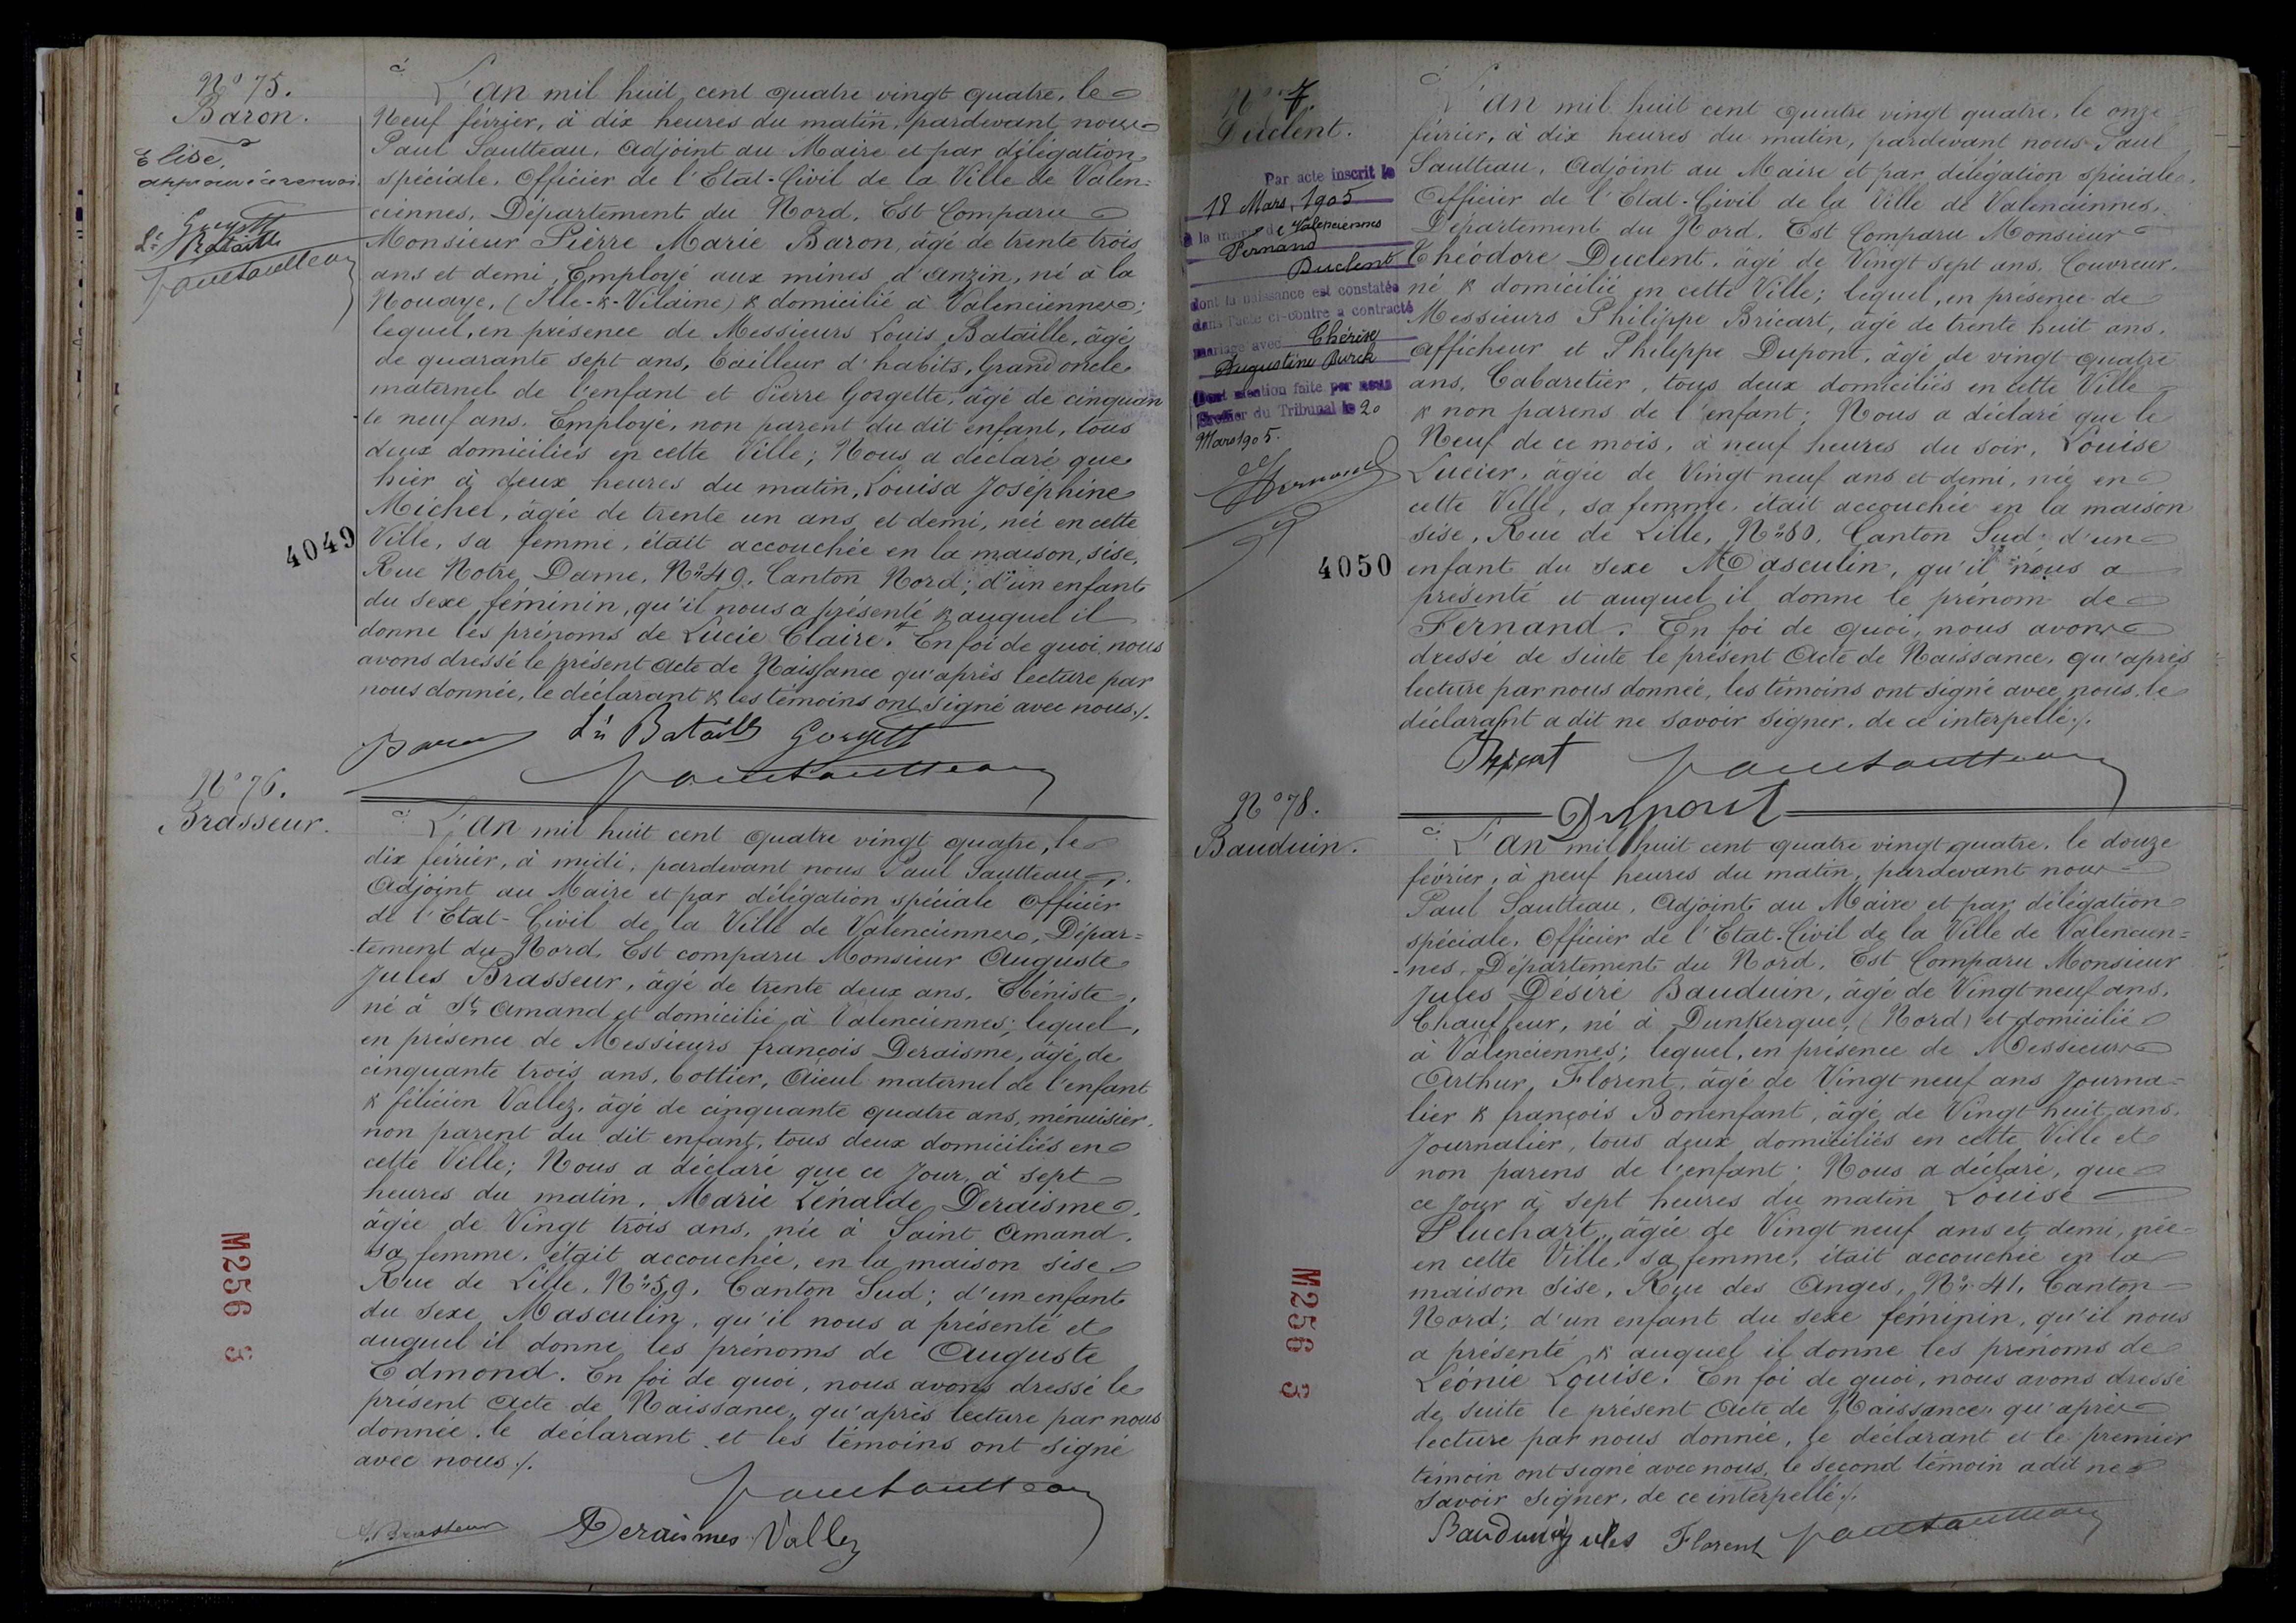 Nº 75.
Baron.
Elise,
Gorgette
Ls Bataille
Paul Sautteau
4049
L'an mil huit cent quatre vingt quatre, le
Neuf février, à dix heures du matin, pardevant nous
Paul Sautteau, Adjoint au Maire et par délégation
spéciale, Officier de l'Etat-Civil de la Ville de Valen=
ciennes, Département du Nord, Est Comparu
Monsieur Pierre Marie Baron, âgé de trente trois
ans et demi, Employé aux mines d'Anzin, né à la
Nouaye, (Ille-&-Vilaine) & domicilié à Valenciennes;
lequel, en présence de Messieurs Louis Bataille, âgé
de quarante sept ans, tailleur d'habits, Grand oncle
maternel de l'enfant et Pierre Gorgette, âgé de cinquan
-te neuf ans, Employé, non parent du dit enfant, tous
deux domiciliés en cette Ville; Nous a déclaré que
hier à deux heures du matin, Louisa Joséphine
Michel, âgée de trente un ans et demi, née en cette
Ville, sa femme, était accouchée en la maison, sise,
Rue Notre Dame, Nº 49, Canton Nord; d'un enfant
du sexe féminin, qu'il nous a présenté & auquel il
donne les prénoms de Lucie Claire. En foi de quoi nous
avons dressé le présent Acte de Naissance qu'après lecture par
nous donnée, le déclarant & les témoins ont signé avec nous ./.
Baron Ls Bataille Gorgette
Paul Sautteau
Nº 76.
Brasseur.
M256 3
L'an mil huit cent quatre vingt quatre, le
dix février, à midi, pardevant nous Paul Sautteau,
Adjoint au Maire et par délégation spéciale Officier
de l'Etat-Civil de la Ville de Valenciennes, Dépar=
-tement du Nord, Est comparu Monsieur Auguste
Jules Brasseur, âgé de trente deux ans, Ebéniste,
né à St Amand et domicilié à Valenciennes; lequel,
en présence de Messieurs françois Deraisme, âgé de
cinquante trois ans, bottier, Aieul maternel de l'enfant
& félicien Vallez, âgé de cinquante quatre ans, menuisier,
non parent du dit enfant, tous deux domiciliés en
cette Ville; Nous a déclaré que ce Jour, à sept
heures du matin, Marie Zénaïde Deraisme,
âgée de Vingt trois ans, née à Saint Amand,
sa femme, était accouchée, en la maison sise
Rue de Lille, Nº 59, Canton Sud; d'un enfant
du sexe Masculin, qu'il nous a présenté et
auquel il donne les prénoms de Auguste
Edmond. En foi de quoi, nous avons dressé le
présent Acte de Naissance, qu'après lecture par nous
donnée, le déclarant et les témoins ont signé
avec nous ./.
Paul Sautteau
A. Brasseur Deraismes Vallez
Nº 7.
Duclent.
Par acte inscrit le
18 Mars 1905
à la mairie de Valenciennes
Fernand
Duclent
dont la naissance est constatée
dans l'acte ci-contre a contracté
mariage avec Thérèse
Augustine Burck
Dont mention faite par nous
Greffier du Tribunal le 20
Mars 1905.
4050
L'an mil huit cent quatre vingt quatre, le onze
février, à dix heures du matin, pardevant nous Paul
Sautteau, Adjoint au Maire et par délégation spéciale,
Officier de l'Etat-Civil de la Ville de Valenciennes,
Département du Nord, Est Comparu Monsieur
Théodore Duclent, âgé de Vingt sept ans, Couvreur,
né & domicilié en cette Ville; lequel, en présence de
Messieurs Philippe Bricart, âgé de trente huit ans,
afficheur et Philippe Dupont, âgé de vingt quatre
ans, Cabaretier, tous deux domiciliés en cette Ville
& non parens de l'enfant; Nous a déclaré que le
Neuf de ce mois, à neuf heures du soir, Louise
Lucier, âgée de Vingt neuf ans et demi, née en
cette Ville, sa femme, était accouchée en la maison
sise, Rue de Lille, Nº 80, Canton Sud d'un
enfant du sexe Masculin, qu'il nous a
présenté et auquel il donne le prénom de
Fernand. En foi de quoi, nous avons
dressé de suite le présent Acte de Naissance, qu'après
lecture par nous donnée, les témoins ont signé avec nous, le
déclarant a dit ne savoir signer, de ce interpellé ./.
Paul Sautteau
Dupont
Nº 78.
Bauduin.
M256 3
L'an mil huit cent quatre vingt quatre, le douze
février, à neuf heures du matin, pardevant nous
Paul Sautteau, Adjoint au Maire et par délégation
spéciale, Officier de l'Etat-Civil de la Ville de Valencien=
-nes, Département du Nord, Est Comparu Monsieur
Jules Désiré Bauduin, âgé de Vingt neuf ans,
Chauffeur, né à Dunkerque, (Nord) et domicilié
à Valenciennes; lequel, en présence de Messieurs
Arthur Florent, âgé de Vingt neuf ans Journa=
lier & françois Bonenfant, âgé de Vingt huit ans,
Journalier, tous deux domiciliés en cette Ville et
non parens de l'enfant; Nous a déclaré, que
ce Jour à sept heures du matin Louise
Pluchart, âgée de Vingt neuf ans et demi, née
en cette Ville, sa femme, était accouchée en la
maison sise, Rue des Anges, Nº 41, Canton
Nord; d'un enfant du sexe féminin, qu'il nous
a présenté & auquel il donne les prénoms de
Léonie Louise. En foi de quoi, nous avons dressé
de suite le présent Acte de Naissance, qu'après
lecture par nous donnée, le déclarant et le premier
témoin ont signé avec nous, le second témoin a dit ne
savoir signer, de ce interpellé ./.
Bauduin Jules Florent Paul Sautteau